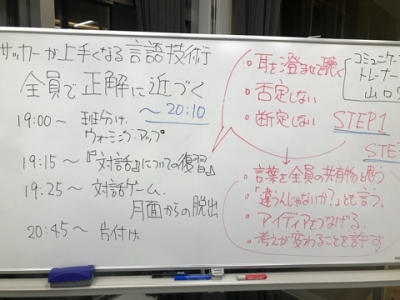 サッカーが上手くなる言語技術
全員で正解に近づく
〜20:10
19:00〜 班分け、
ウォーミング・アップ
19:15〜『「対話」についての復習』
19:25〜 対話ゲーム、
月面からの脱出
20:45〜 片付け
・耳を澄ませて聴く
・否定しない
・断定しない
STEP1
コミュニケー
トレーナー
山口
STE
・言葉を全員の共有物と思う
・「違うんじゃないか?」とも言う。
・アイディアをつなげる。
・考えが変わることを許す